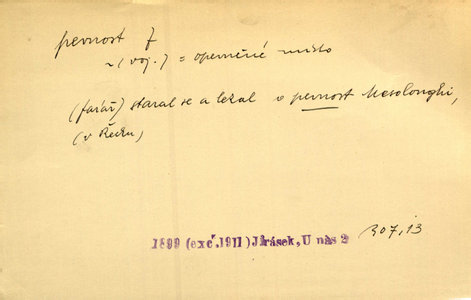 pevnost f
~ (voj.) = opevněné místo
(farář) staral se a lekal o pevnost Mesolonghi,
(v Řecku)
1899 (exc.1911) Jirásek, U nás 2 307,13